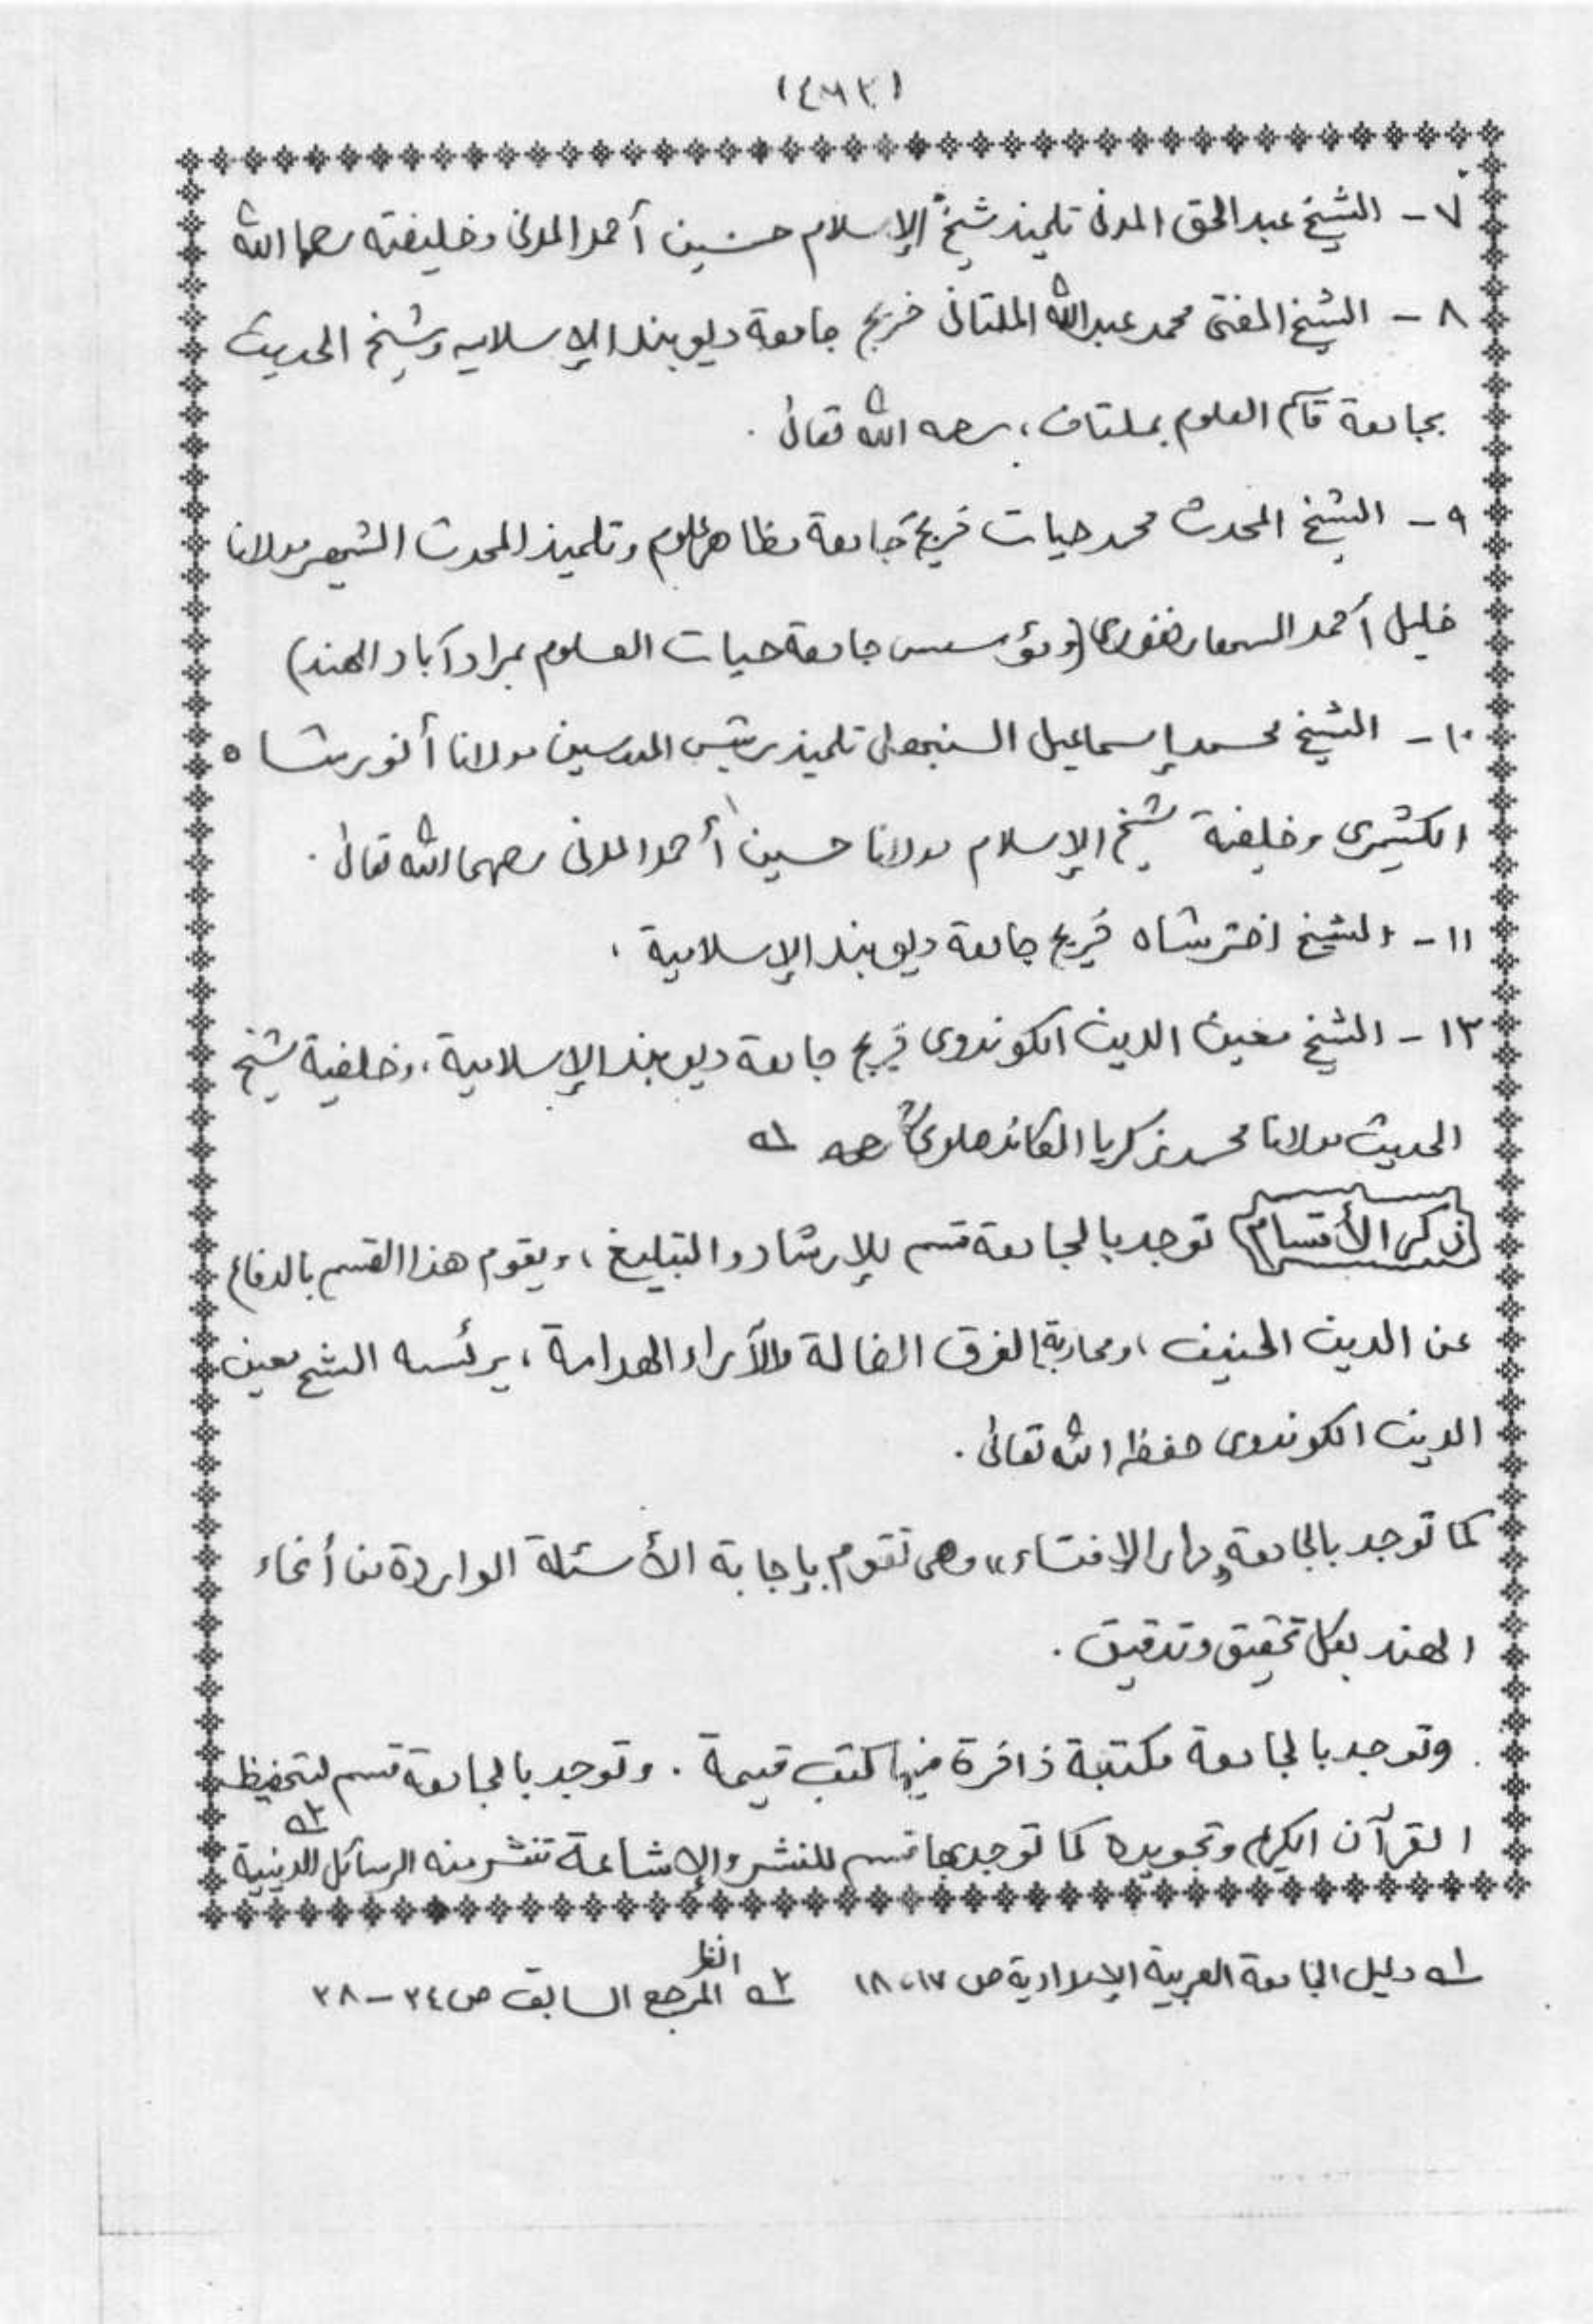 ٧ - الشيخ عبد الحق المدنى تلميذ شيخ الإسلام حسين أحمد المدنى وخليفته رحمهما الله
٨ - الشيخ المفتى محمد عبد الله الملتانى خريج جامعة ديوبند الإسلاميه وشيخ الحديث
بجامعة قاسم العلوم بملتان، رحمه الله تعالى .
٩ - الشيخ المحدث محمد حيات خريج جامعة مظاهر علوم وتلميذ المحدث الشهير مولانا
خليل أحمد السهارنفورى (ومؤسس جامعة حيات العلوم بمراد آباد الهند)
١٠ - الشيخ محمد إسماعيل السنبهلى تلميذ رئيس المدرسين مولانا أنور شاه
الكشميرى وخليفة شيخ الإسلام مولانا حسين أحمد المدنى رحمهما الله تعالى .
١١ - الشيخ اختر شاه خريج جامعة ديوبند الإسلامية .
١٢ - الشيخ معين الدين الكوندوى خريج جامعة ديوبند الإسلامية ، وخليفة شيخ
الحديث مولانا محمد زكريا الكاندهلوى رحمه الله ١ـه
ذكر الأقسام توجد بالجامعة قسم للإرشاد والتبليغ ، ويقوم هذا القسم بالدفاع
عن الدين الحنيف ، ومحاربة الفرق الضالة والآراء الهدامة ، يرئسه الشيخ معين
الدين الكوندوى حفظه الله تعالى .
كما توجد بالجامعة "دار الإفتاء" وهى تقوم بإجابة الأسئلة الواردة من أنحاء
الهند بكل تحقيق وتدقيق .
وتوجد بالجامعة مكتبة زاخرة فيها كتب قيمة . وتوجد بالجامعة قسم لتحفيظ
القرآن الكريم وتجويده كما توجد بها قسم للنشر والإشاعة تنشر منه الرسائل الدينية ٢ـه
١ـه دليل الجامعة العربية الإمدادية ص ١٧، ١٨ ٢ـه انظر المرجع السابق ص ٢٤ - ٢٨